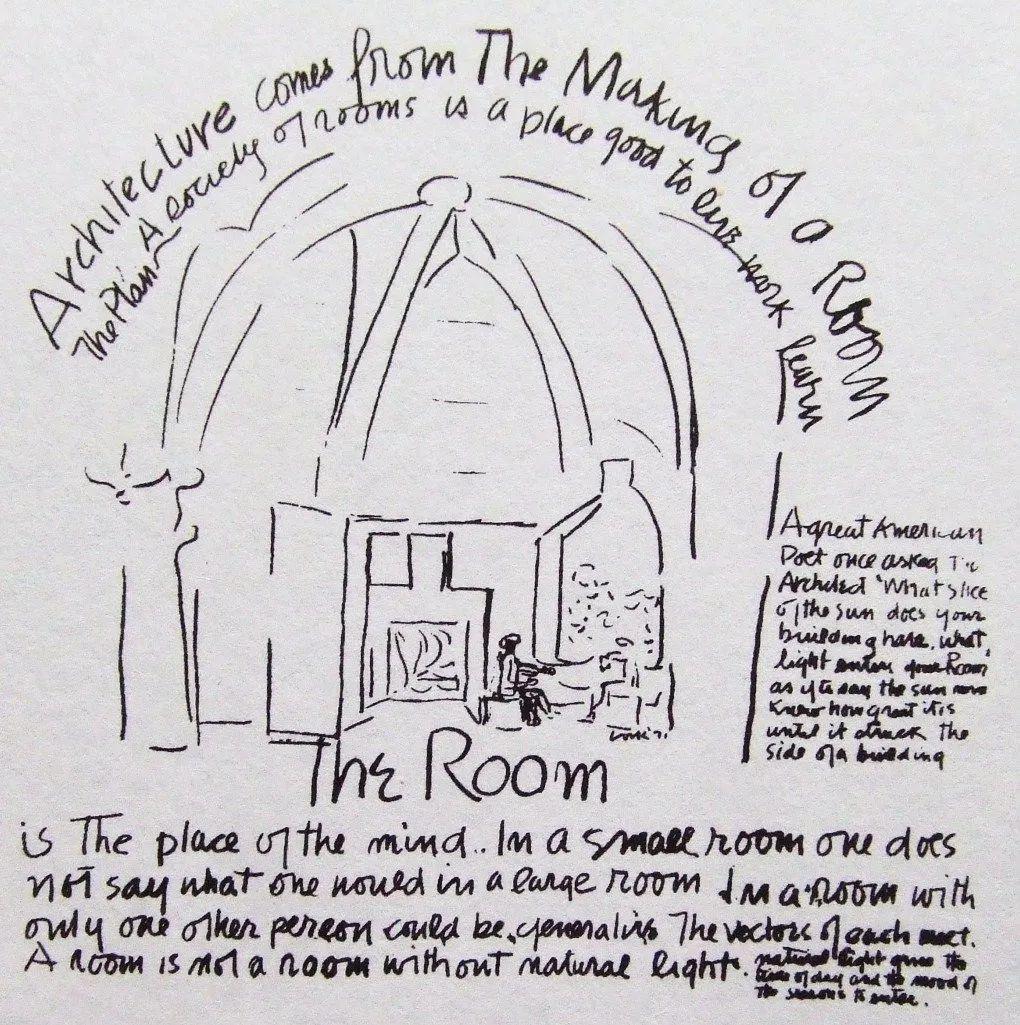 Architecture comes from The Making of a Room
The Plan - A society of rooms is a place good to live work learn
A great American
Poet once asked The
Architect 'What slice
of the sun does your
building have, what
light enters your Room
as if to say the sun never
knew how great it is
until it struck the
side of a building
The Room
is The place of the mind.. In a small room one does
not say what one would in a large room In a room with
only one other person could be generative The vectors of each meet.
A room is not a room without natural light.
natural light gives the
time of day and the mood of
the seasons to enter.